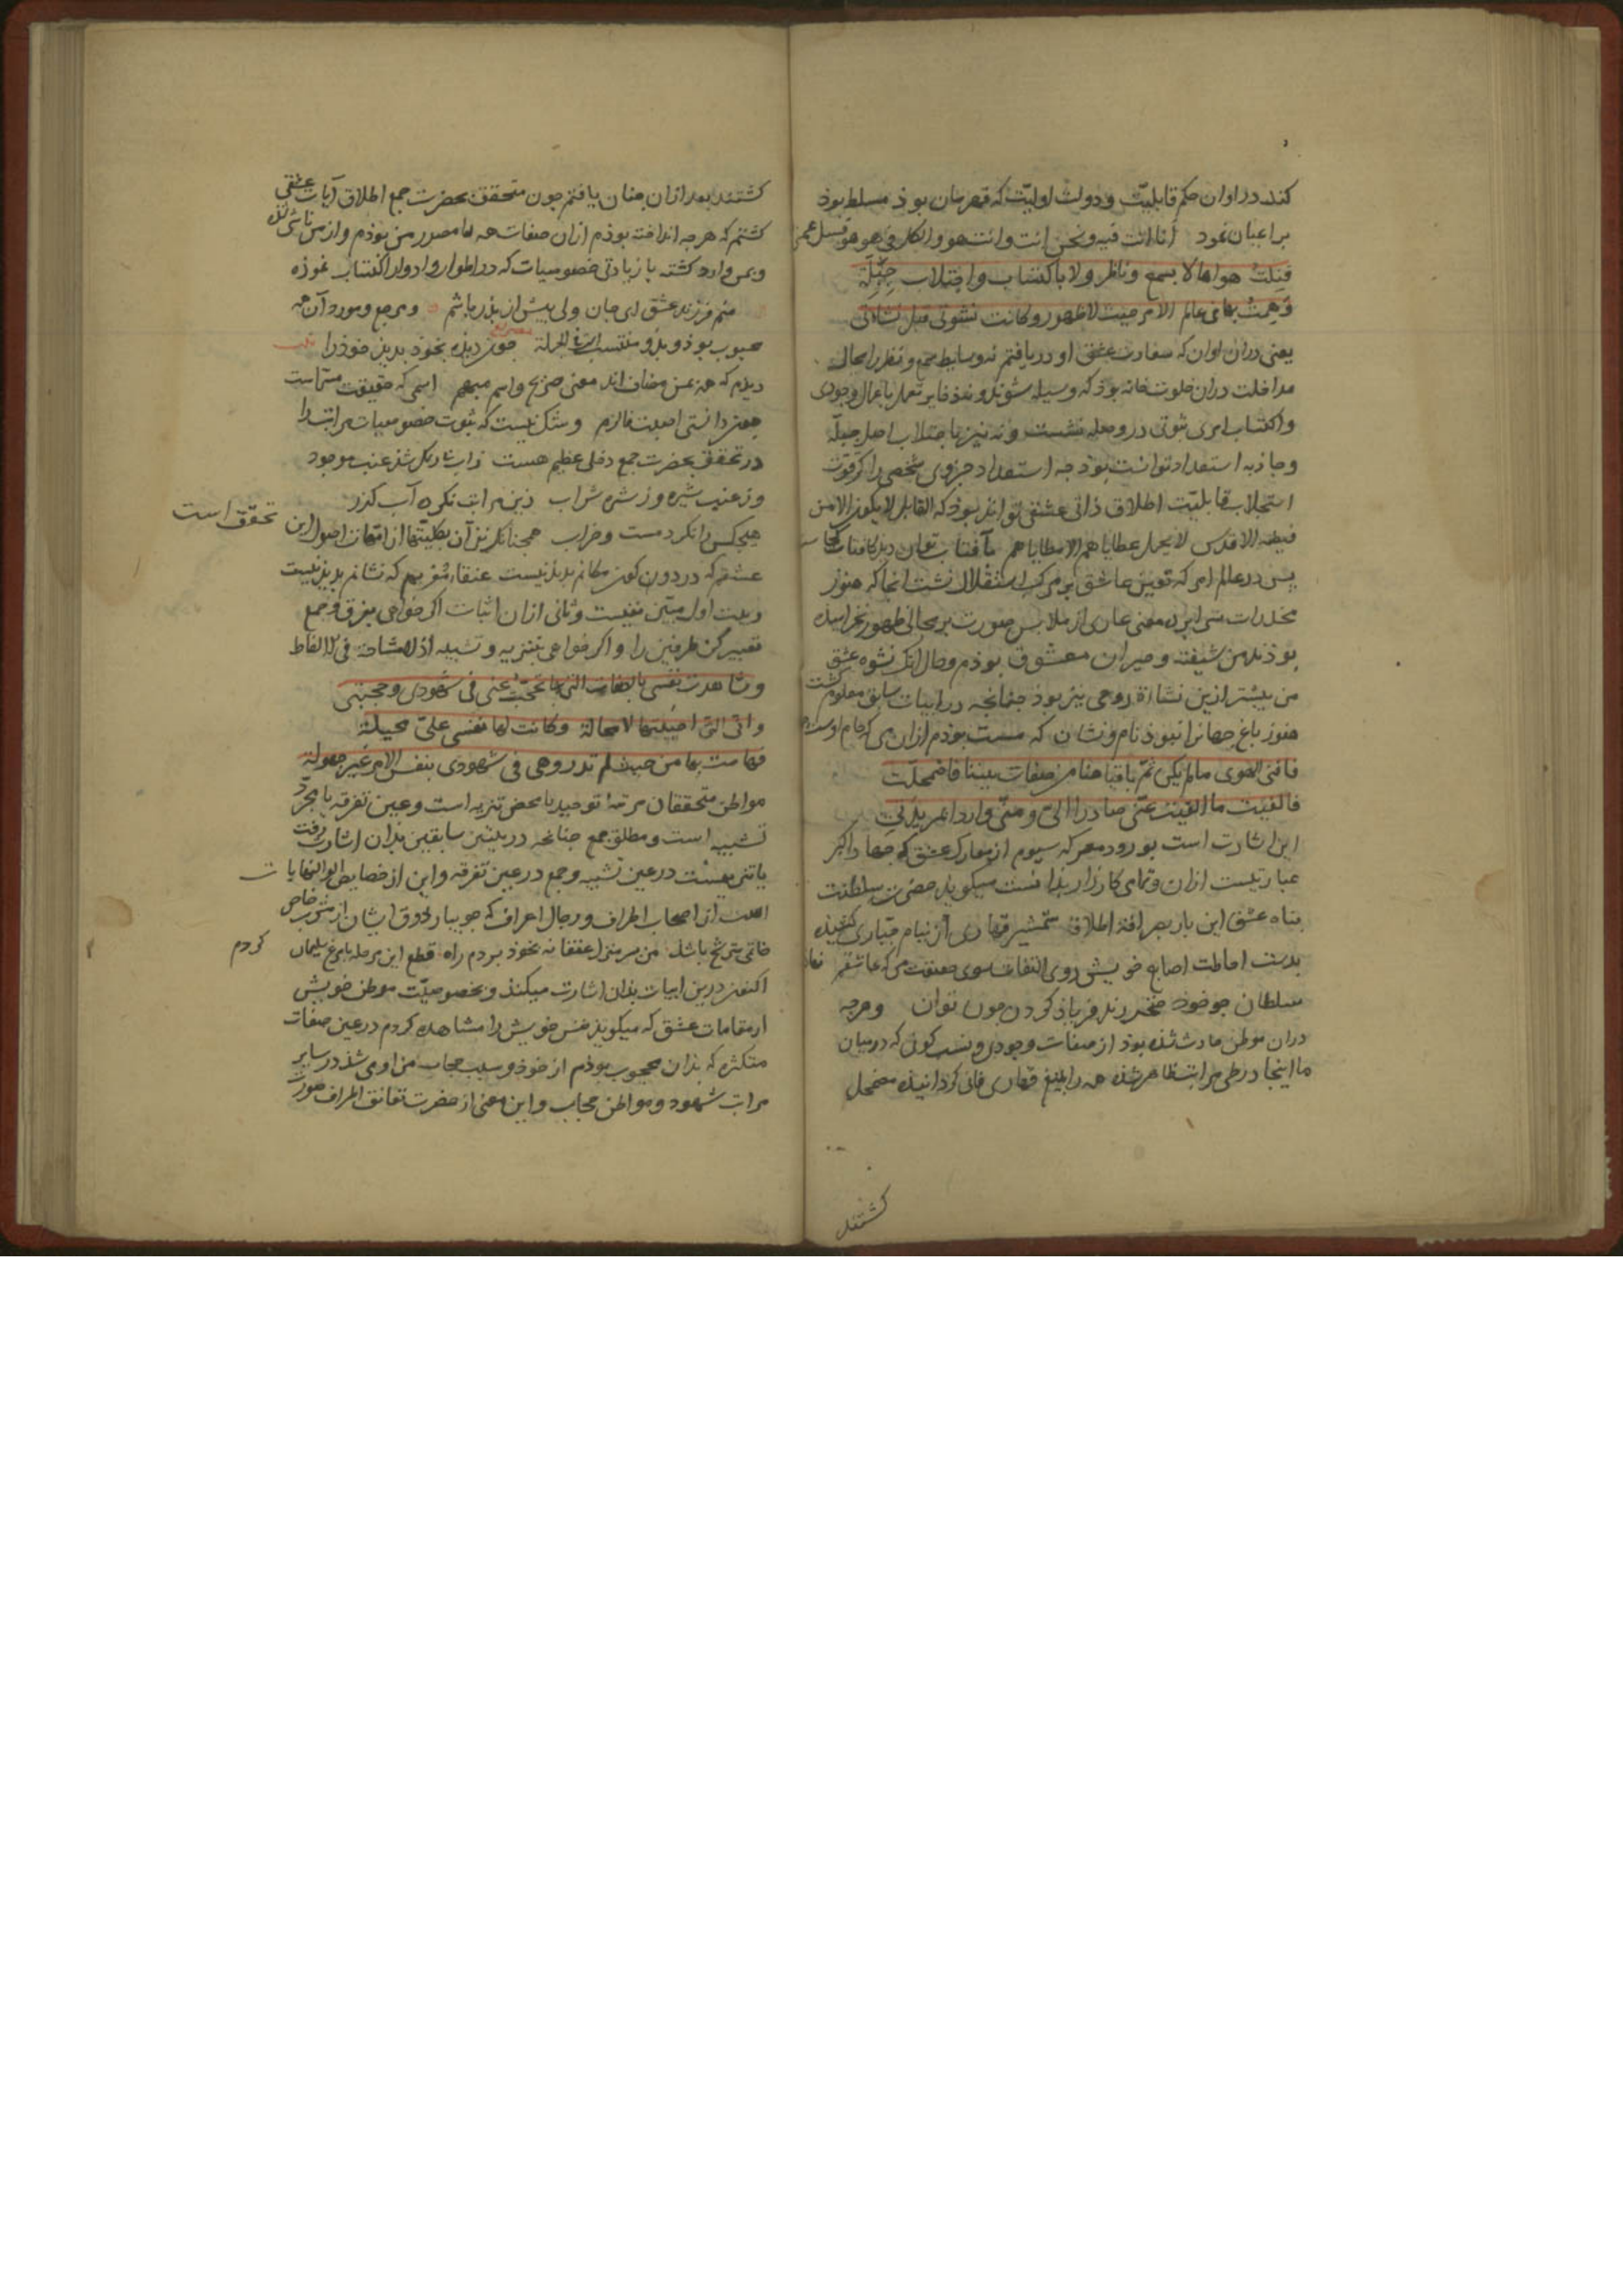 کند در اوان حکم قابلیّت و دولت اولیّت که قهرمان بوذ مسلط بوذ
بر اعیان نمود انا انت فیه و نحن انت و انت هو و الکل فی هو هو فسل عمن
قبلتُ هواها لا بسمع و ناظر ولا باکتساب و اجتلاب جبلّة
وهمتُ بها فی عالم الامر حیث لا ظهور و کانت نشوتی قبل نشاتی
یعنی در ان اوان که سعادت عشق او دریافتم نه وسایط سمع و نظر را مجال
مداخلت دران خلوت خانه بوذ که وسیله شوند و نه ذخایر تعمل باعمال وجودی
و اکتساب امری ثبوتی در وصله نشست و نه نیز باجتلاب اصل جبلّه
و جاذبه استعداد توانست بوذ چه استعداد جزوی شخصی را کی قوت
استجلاب قابلیّت اطلاق ذاتی عشقی تواند بوذ که القابل لا یکون الا من
فیضه الاقدس لا یحمل عطایاهم الا مطایاهم بآفتاب توان دید کافتاب کجاست
پس در عالم امر که تعین عاشق بر مرکب استقلال نشست انجا که هنوز
مخدرات سرابرده معنی عاری از ملابس صورت بر مجالی ظهور نخرامیده
بوذند من شیفته و حیران معشوق بوذم و حال انک نشوه عشق
من بیشتر ازین نشاءة روحی نیز بوذ چنانچه در ابیات سابق معلوم گشت
هنوز باغ جهانرا نبوذ نام و نشان که مست بوذم ازان می که جام اوست جهان
فافنی الهوی ما لم یکن ثمّ باقیا هنا من صفات بیننا فاضمحلّت
فالفیت ما القیت عنّی صادرا الیّ و منّی واردا بمزیدتی
این اشارت است بورود معرکه سیوم از معارک عشق که جهاد اکبر
عبارتست ازان و تمامی کارزار بذانست میکوید حضرت سلطنت
بناه عشق این بار بصرافة اطلاق شمشیر قهاری از نیام جباری کشیده
بدست احاطت اصابع خویش روی التفات سوی حقیقت من که عاشقم نهاد
سلطان جو خوذ خنجر زند فریاذ کردن چون توان و هرچه
دران موطن حادث شده بوذ از صفات وجودی و نسب کونی که درمیان
ما اینجا در طی مراتب ظاهر شده همه را بتیغ قهاری فانی کردانیده مضمحل
کشتند
کشتند بعد ازان چنان یافتم چون متحقق بحضرت جمع اطلاق آیات عشقی
کشتم که هرچه انداخته بوذم ازان صفات همه را مصدر من بوذم و از من ناشی شذه
و بمن وارد کشته با زیادتی خصوصیات که در اطوار و ادوار اکتساب نموذه
منم فرزند عشق ای جان ولی بیش از پذر باشم و مرجع و مورد آن همه
محبوب بوذ و بذو منتسب فی الجملة چون دیده بخوذ بدید خوذ را
دیدم که همه بمن مضاف اند معنی صریح و اسم مبهم اسمی که حقیقت مسماست
چون دانستی اصلت فالزم و شک نیست که ثبوت خصوصیات مراتب را
در تحقق بحضرت جمع دخلی عظیم هست زاب شد کل شذ عنب موجود
وز عنب شیره وز شیره شراب زین مراتب نکرده آب کذر
هیچکس را نکرد مست و خراب همچنانکه نیز آن بکلیتها از امتهات اصول این تحقق است
عشقم که در دون کون مکانم پدید نیست عنقاء مغربم که نشانم پدید نیست
و بیت اول مبیّن نفیست و ثانی ازان اثبات اگر خواهی بفرق و جمع
تعبیر کن طرفین را و اگر خواهی بتنزیه و تشبیه اذ لا مشاحة فی الالفاظ
و شاهدت نفسی بالصفات التی بها تحجّبت عنی فی شهودی و حجبتی
و انّی الّتی احببتها لا محالة و کانت لها نفسی علیّ محیلة
فهامت بها من حیث لم تدر و هی فی شهودی بنفس الامر غیر جهولة
مواطن متحققان مرتبهٔ توحید یا محض تنزیه است و عین تفرقه یا مجرّد
تشبیه است و مطلق جمع چنانچه در بیتین سابقین بذان اشارت رفت
یا تنزیهست در عین تشبیه و جمع در عین تفرقه و این از خصایص اولوا النهایات
است از اصحاب اطراف و رجال اعراف که جویبار ذوق ایشان از شرب خاص
خاتمی مترشح باشد من سر منزل عنقا نه بخوذ بردم راه قطع این مرحله با مرغ سلیمان کردم
اکنون درین ابیات بذان اشارت میکند و بخصوصیّت موطن خویش
از مقامات عشق که میکوید نفس خویش را مشاهده کردم در عین صفات
متکثره که بذان محجوب بوذم از خوذ و سبب حجاب من او می شذ در سایر
مراتب شهود و مواطن حجاب و این معنی از حضرت تعانق اطراف صورت